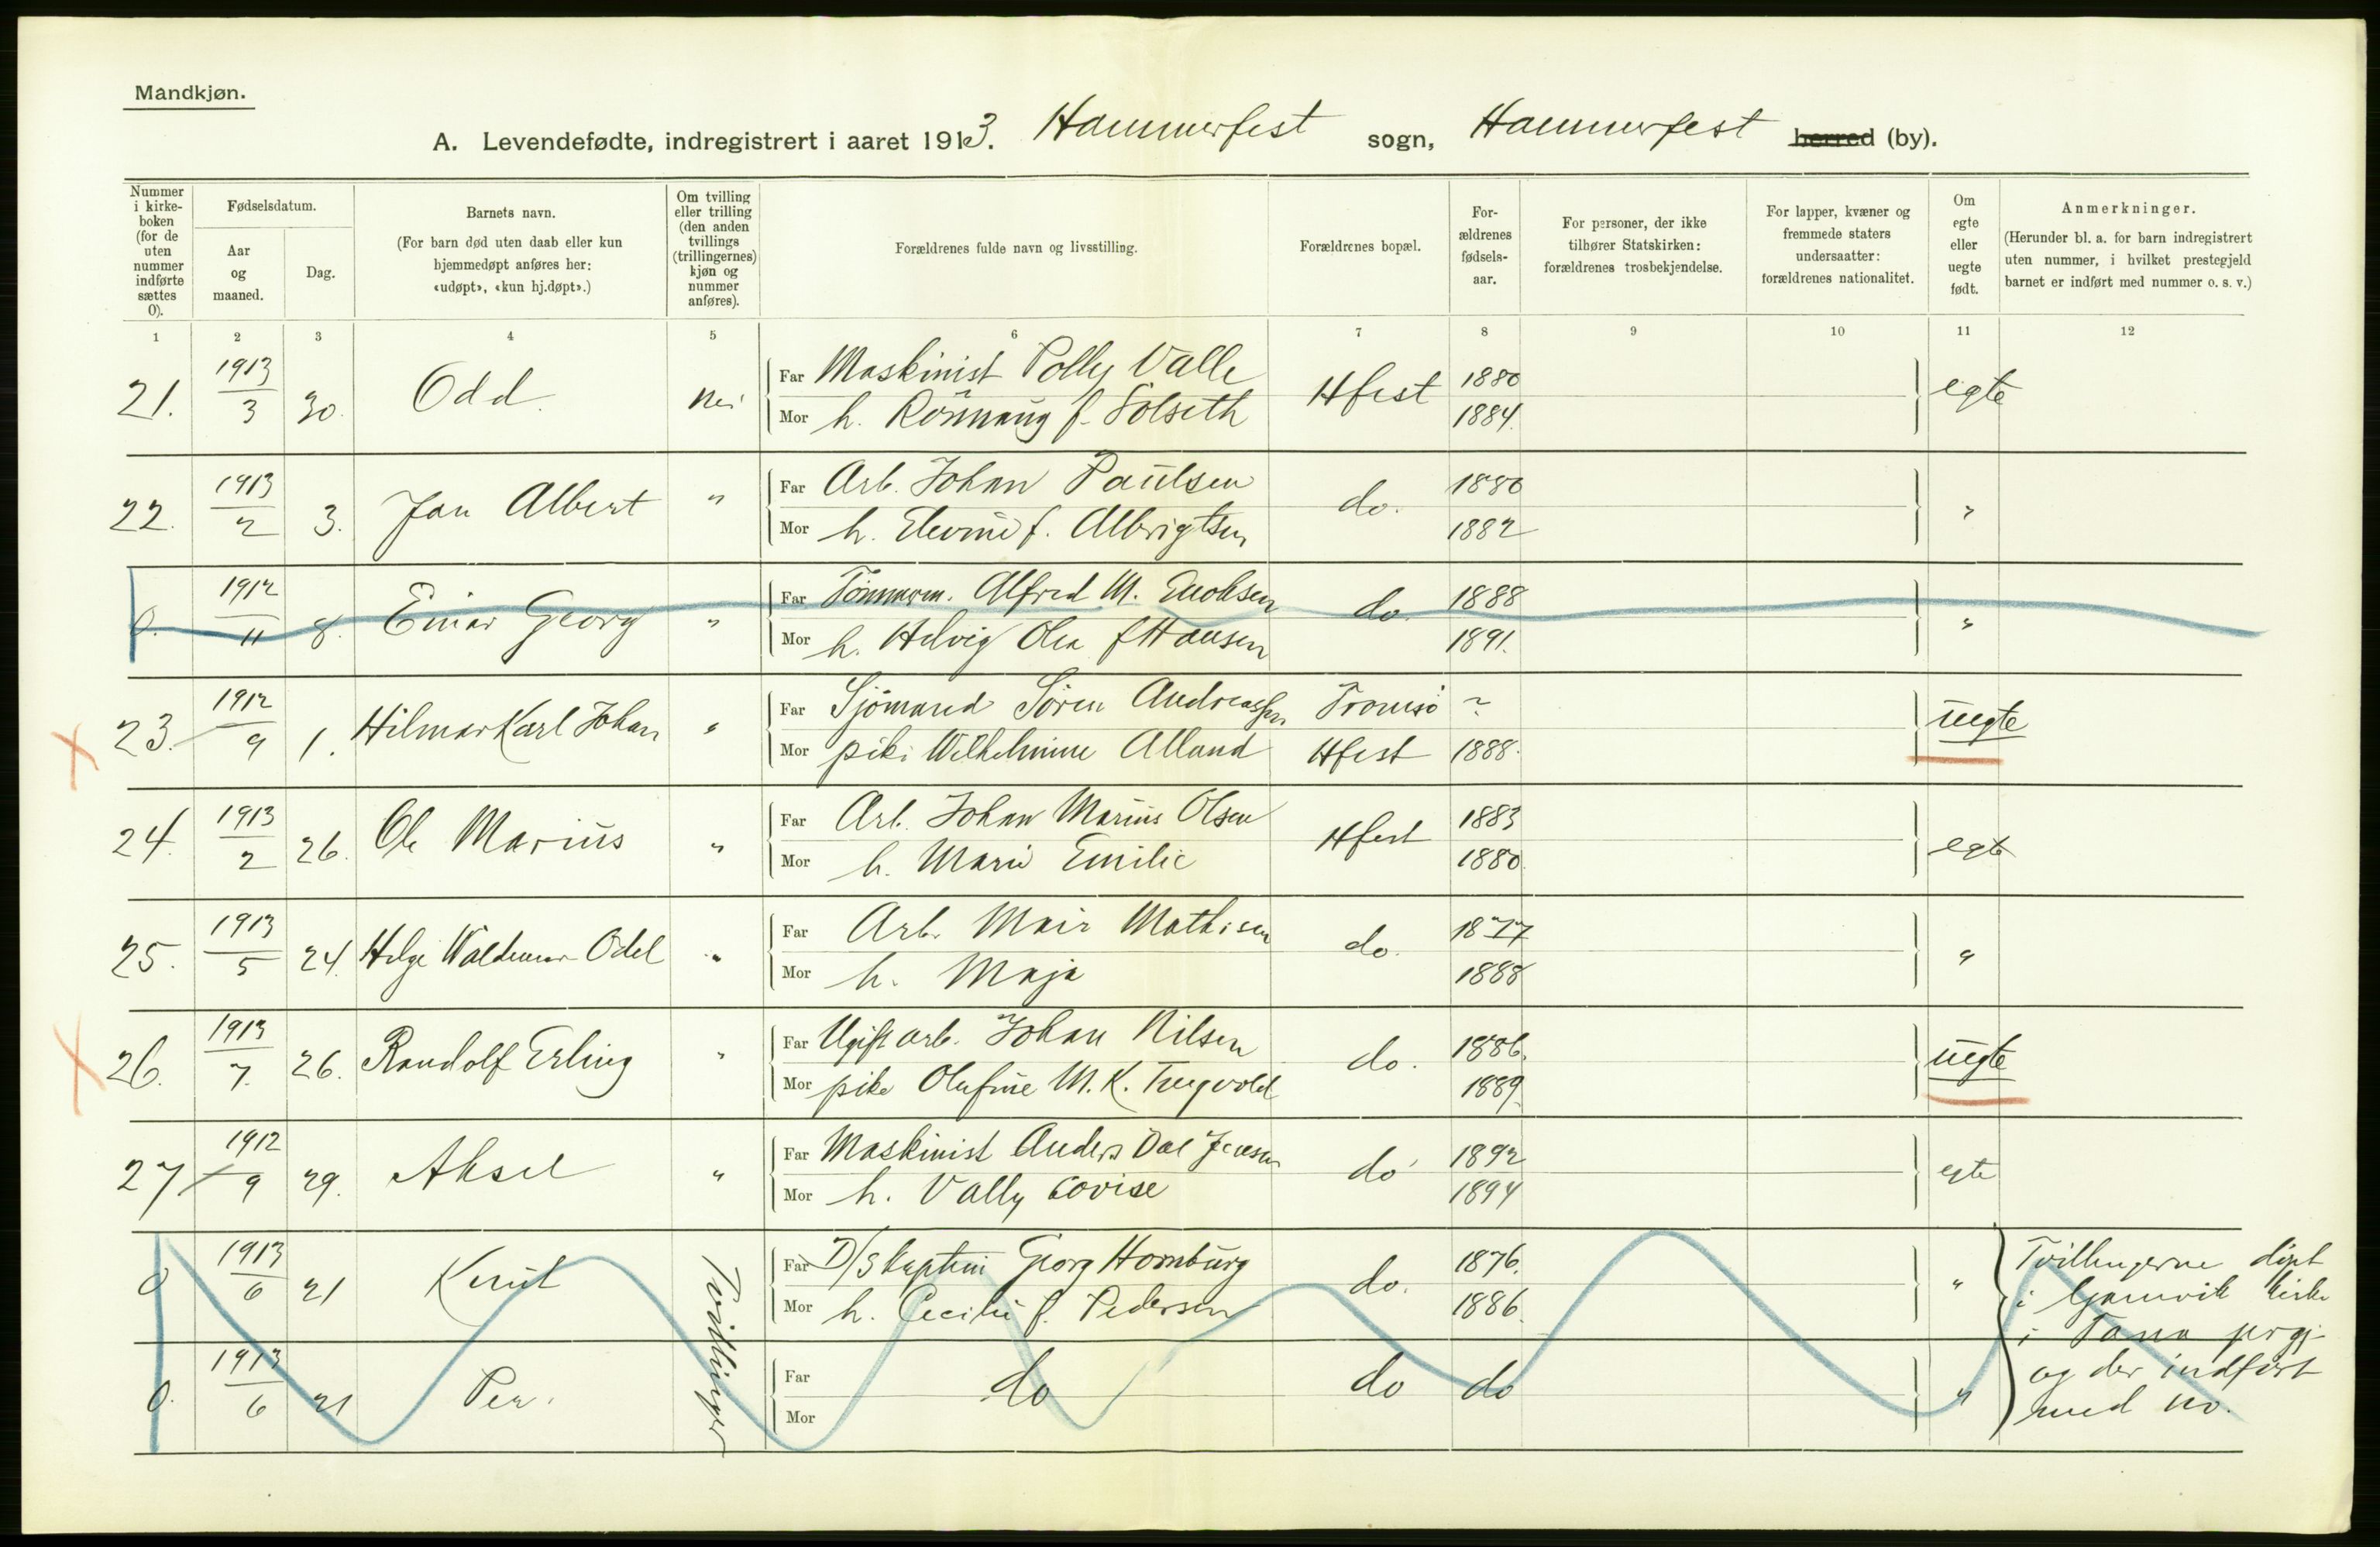 Mandkjøn.
A. Levendefødte, indregistrert i aaret 1913. Hammerfest sogn, Hammerfest herred (by).
Nummer i kirke-boken (for de uten nummer indførte sættes 0).
Fødselsdatum.
Aar og maaned.
Dag.
Barnets navn.
(For barn død uten daab eller kun hjemmedøpt anføres her: «udøpt», «kun hj.døpt».)
Om tvilling eller trilling (den anden tvillings (trillingernes) kjøn og nummer anføres).
Forældrenes fulde navn og livsstilling.
Forældrenes bopæl.
For-ældrenes fødsels-aar.
For personer, der ikke tilhører Statskirken: forældrenes trosbekjendelse.
For lapper, kvæner og fremmede staters undersaatter: forældrenes nationalitet.
Om egte eller uegte født.
Anmerkninger.
(Herunder bl. a. for barn indregistrert uten nummer, i hvilket prestegjeld barnet er indført med nummer o. s. v.)
1 2 3 4 5 6 7 8 9 10 11 12
21. 1913/3 30. Odd. nei Far Maskinist Polly Valle Hfest 1880 egte
Mor h. Rönnaug f. Solseth 1884.
22. 1913/2 3. Jan Albert " Far Arb. Johan Paulsen do. 1880 "
Mor h. Elevine f. Albrigtsen 1882
0. 1912/11 8. Einar Georg " Far Tömmerm. Alfred M. Enoksen do. 1888 "
Mor h. Helvig Olea f Hansen 1891.
23. 1912/9 1. Hilmar Karl Johan " Far Sjömand Sören Andreassen Tromsö ? uegte
Mor pike Wilhelmine Alland Hfest 1888.
24. 1913/2 26. Ole Marius " Far Arb. Johan Marius Olsen Hfest 1883 egte
Mor h. Marie Emilie 1880.
25. 1913/5 24. Helge Waldemar Odel " Far Arb. Mair Mathisen do. 1877 "
Mor h. Maja 1888
26. 1913/7. 26. Randolf Erling " Far Ugift arb. Johan Nilsen do. 1886. uegte
Mor pike Olufine M. K. 1889.
27 1912/9 29. Aksel " Far Maskinist Anders Dae Jensen do 1892 egte
Mor h. Vally Lovise 1894
0 1913/6 21 Knut Tvillinger Far D/S kaptein Georg Hornburg do. 1876. " Tvillingerne döpt
Mor h. Cecilie f. Pedersen 1886. i Gamvik kirke
i Tana prgj.
0. 1913/6 21 Per. Far do do do " og der indfört
Mor med no.